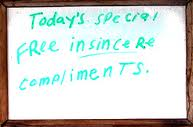 Today's special
FREE insincere
compliments.